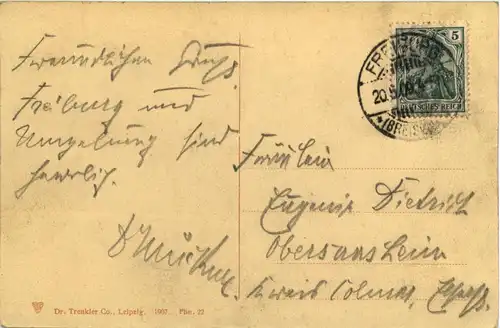 Freundlichen Gruß
Freiburg und
Umgebung sind
herrlich.
Fräulein
Eugenie Dietrich
Obersaasheim
Kreis Colmar, Elsass.
5
FREIBURG
20.
(BREISGAU)
DEUTSCHES REICH
Dr. Trenkler Co., Leipzig. 1907. Fbr. 22